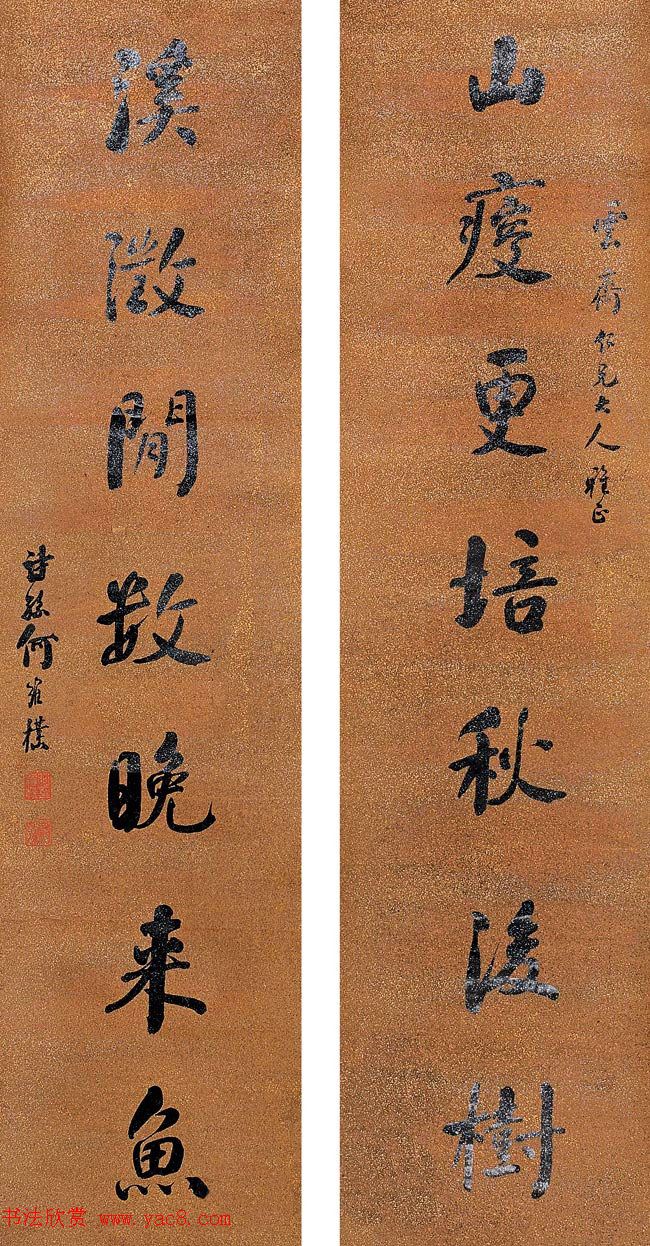 雲齋仁兄大人雅正
山瘦更培秋後樹
溪澂閒数晚来魚
詩孫何維樸
书法欣赏 www.yac8.com